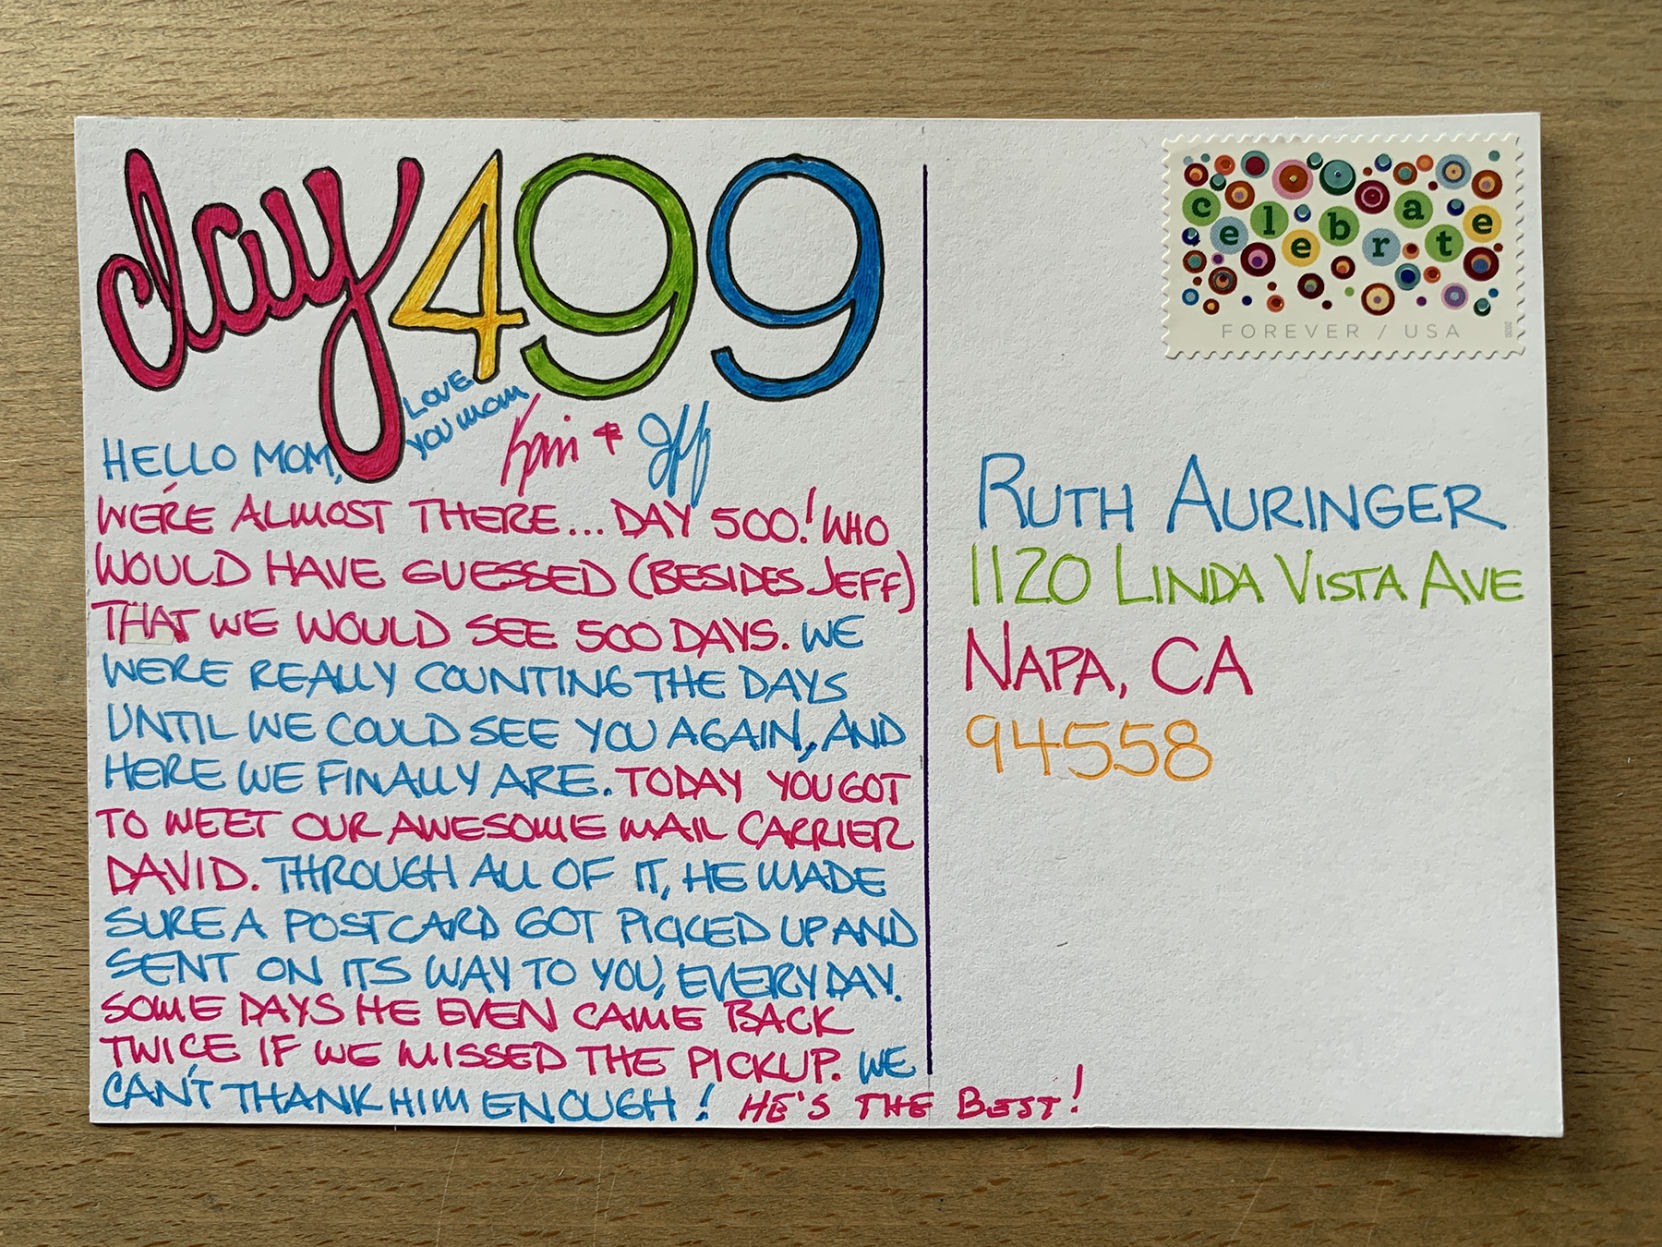 day 499
LOVE
YOU MOM
Kim + Jeff
HELLO MOM,
WE'RE ALMOST THERE... DAY 500! WHO
WOULD HAVE GUESSED (BESIDES JEFF)
THAT WE WOULD SEE 500 DAYS. WE
WERE REALLY COUNTING THE DAYS
UNTIL WE COULD SEE YOU AGAIN, AND
HERE WE FINALLY ARE. TODAY YOU GOT
TO MEET OUR AWESOME MAIL CARRIER
DAVID. THROUGH ALL OF IT, HE MADE
SURE A POSTCARD GOT PICKED UP AND
SENT ON ITS WAY TO YOU, EVERYDAY.
SOME DAYS HE EVEN CAME BACK
TWICE IF WE MISSED THE PICKUP. WE
CAN'T THANK HIM ENOUGH! HE'S THE BEST!
celebrate
FOREVER / USA
2020
RUTH AURINGER
1120 LINDA VISTA AVE
NAPA, CA
94558